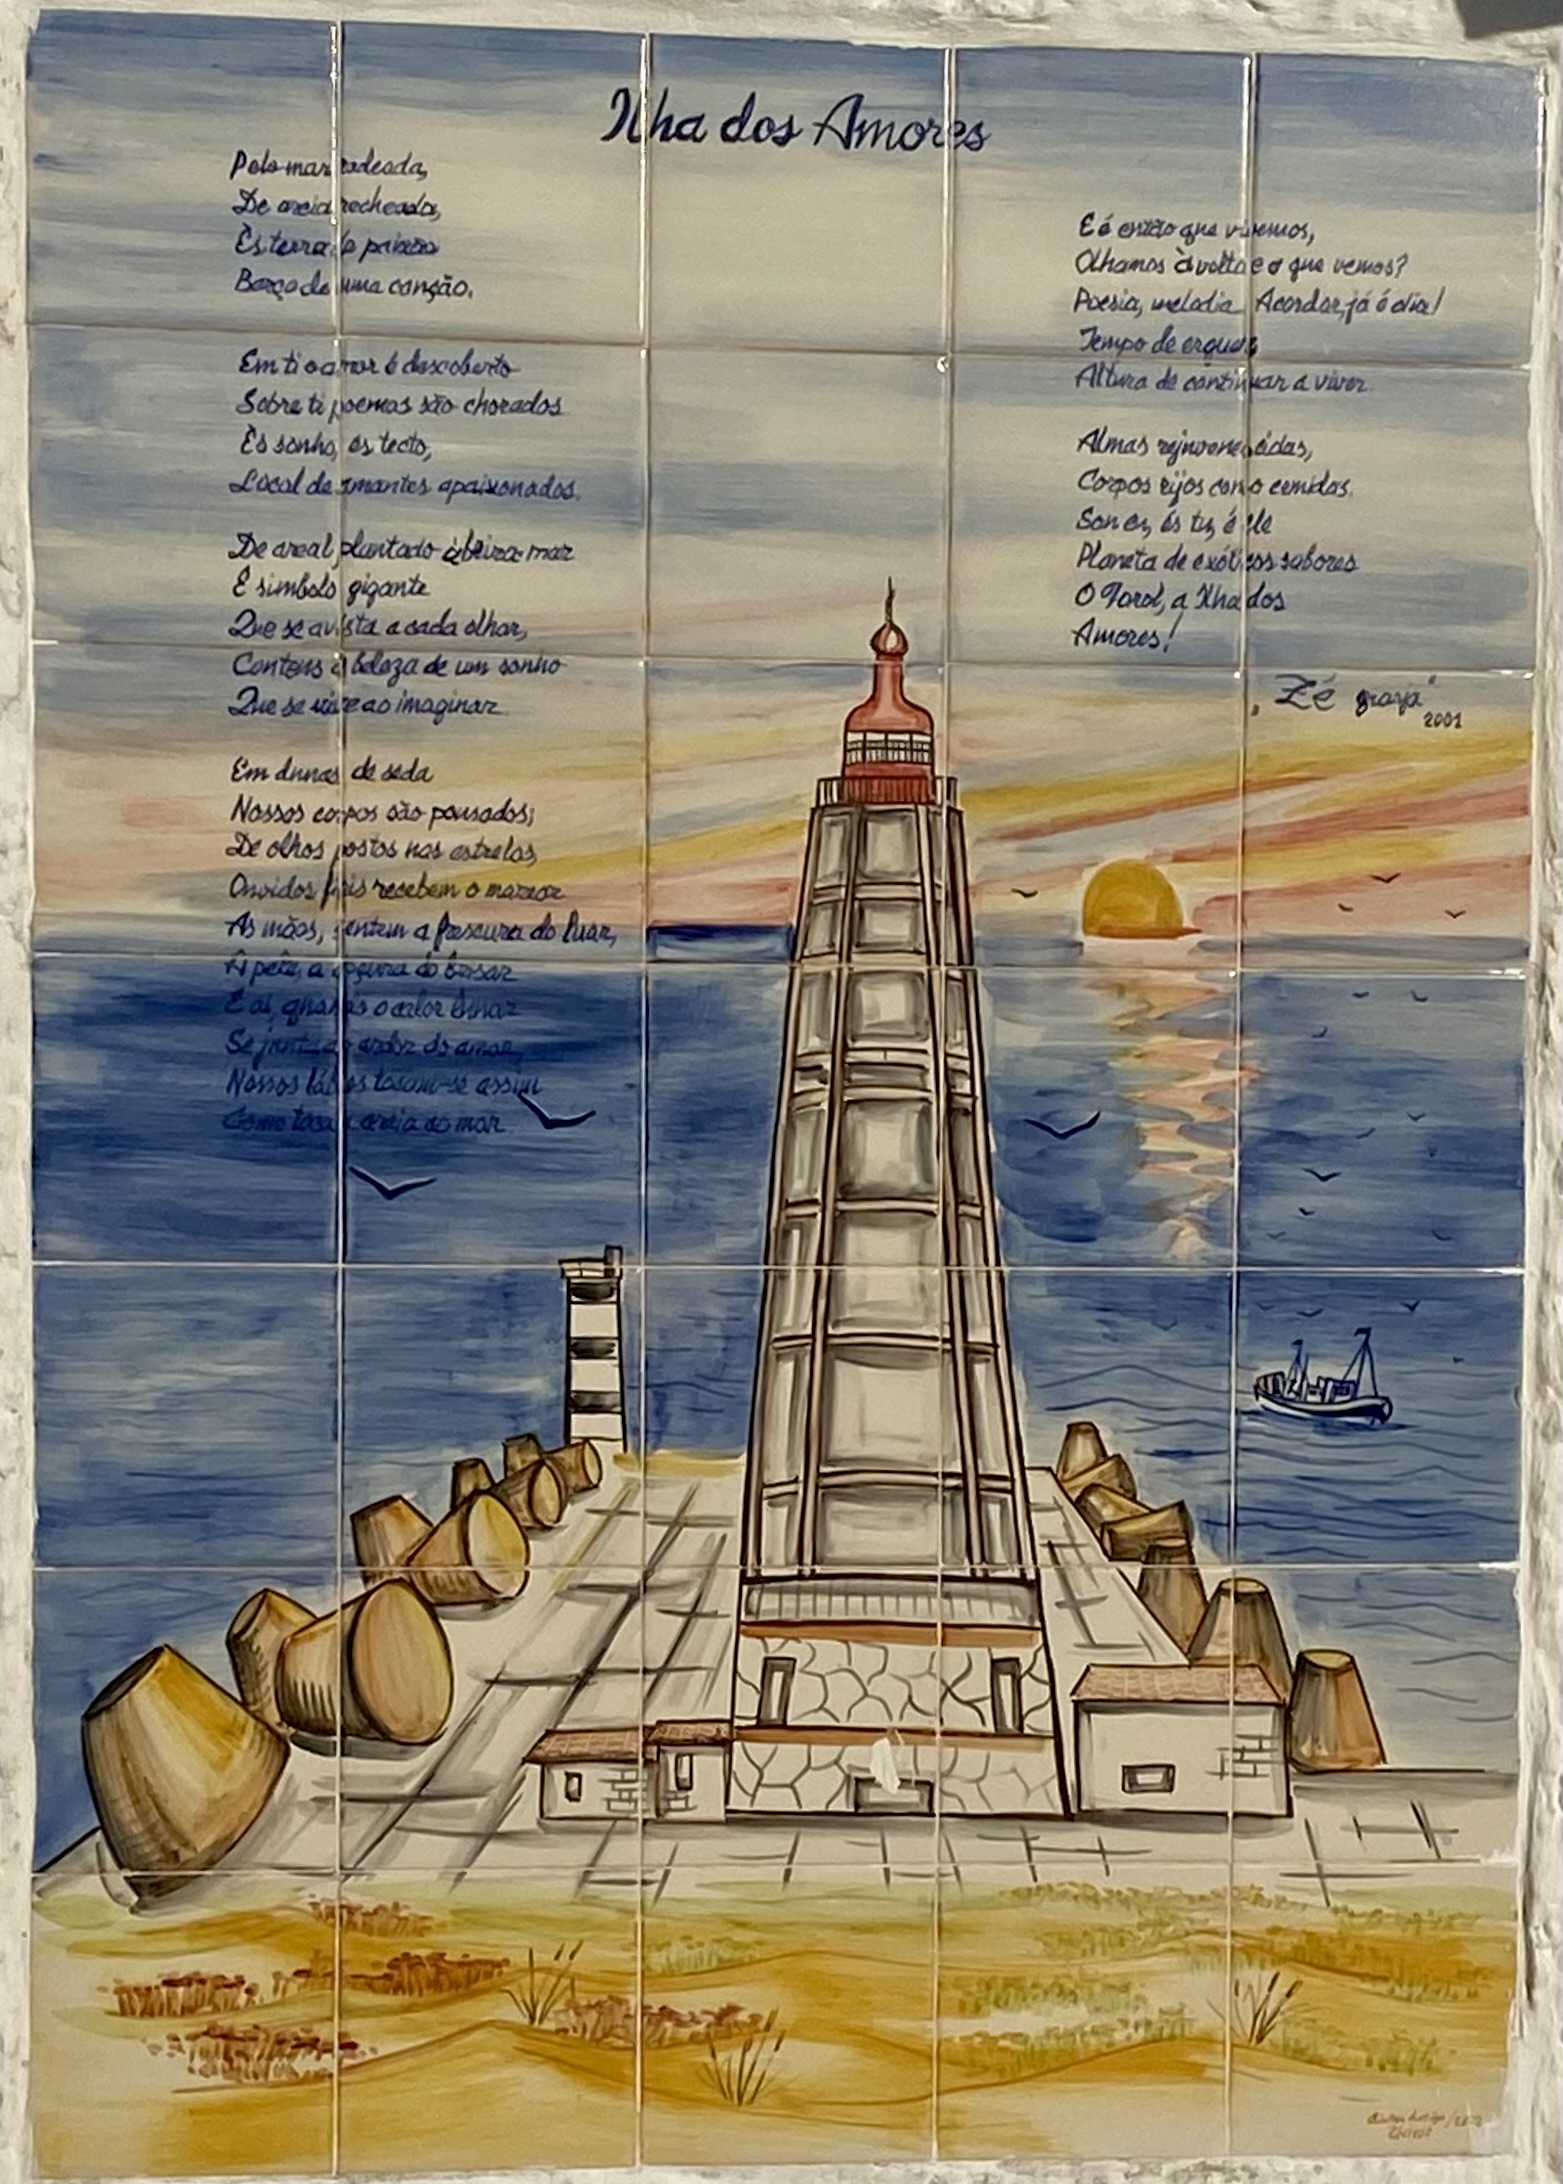 Ilha dos Amores
Pelo mar rodeada,
De areia recheada,
És terra de paixão
Berço de uma canção.
Em ti o amor é descoberto
Sobre ti poemas são chorados
És sonho, és tecto,
Local de amantes apaixonados.
De areal plantado à beira-mar
E simbolo gigante
Que se avista a cada olhar,
Contens a beleza de um sonho
Que se vive ao imaginar.
Em dunas de seda
Nossos corpos são pousados;
De olhos postos nas estrelas,
Ouvidos fieis recebem o marear
As mãos, sentem a frescura do luar,
A pele, a do
E o calor
Se junta ao ardor do amor,
Nossos lábios tocam-se assim
Como toca a areia ao mar.
E é então que vivemos,
Olhamos à volta e o que vemos?
Poesia, melodia Acordar, já é dia!
Tempo de erguer,
Altura de continuar a viver
Almas rejuvenescidas,
Corpos rijos como
Sou eu, és tu, é ele
Planeta de exóticos sabores
O Farol, a Ilha dos
Amores!
"Zé graya"
2001